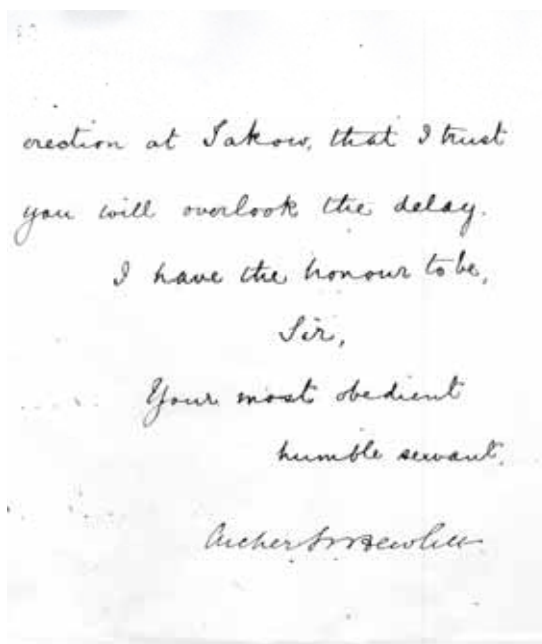 erection at Takow, that I trust
you will overlook the delay.
I have the honour to be,
Sir,
Your most obedient
humble servant,
Archer Hewlett